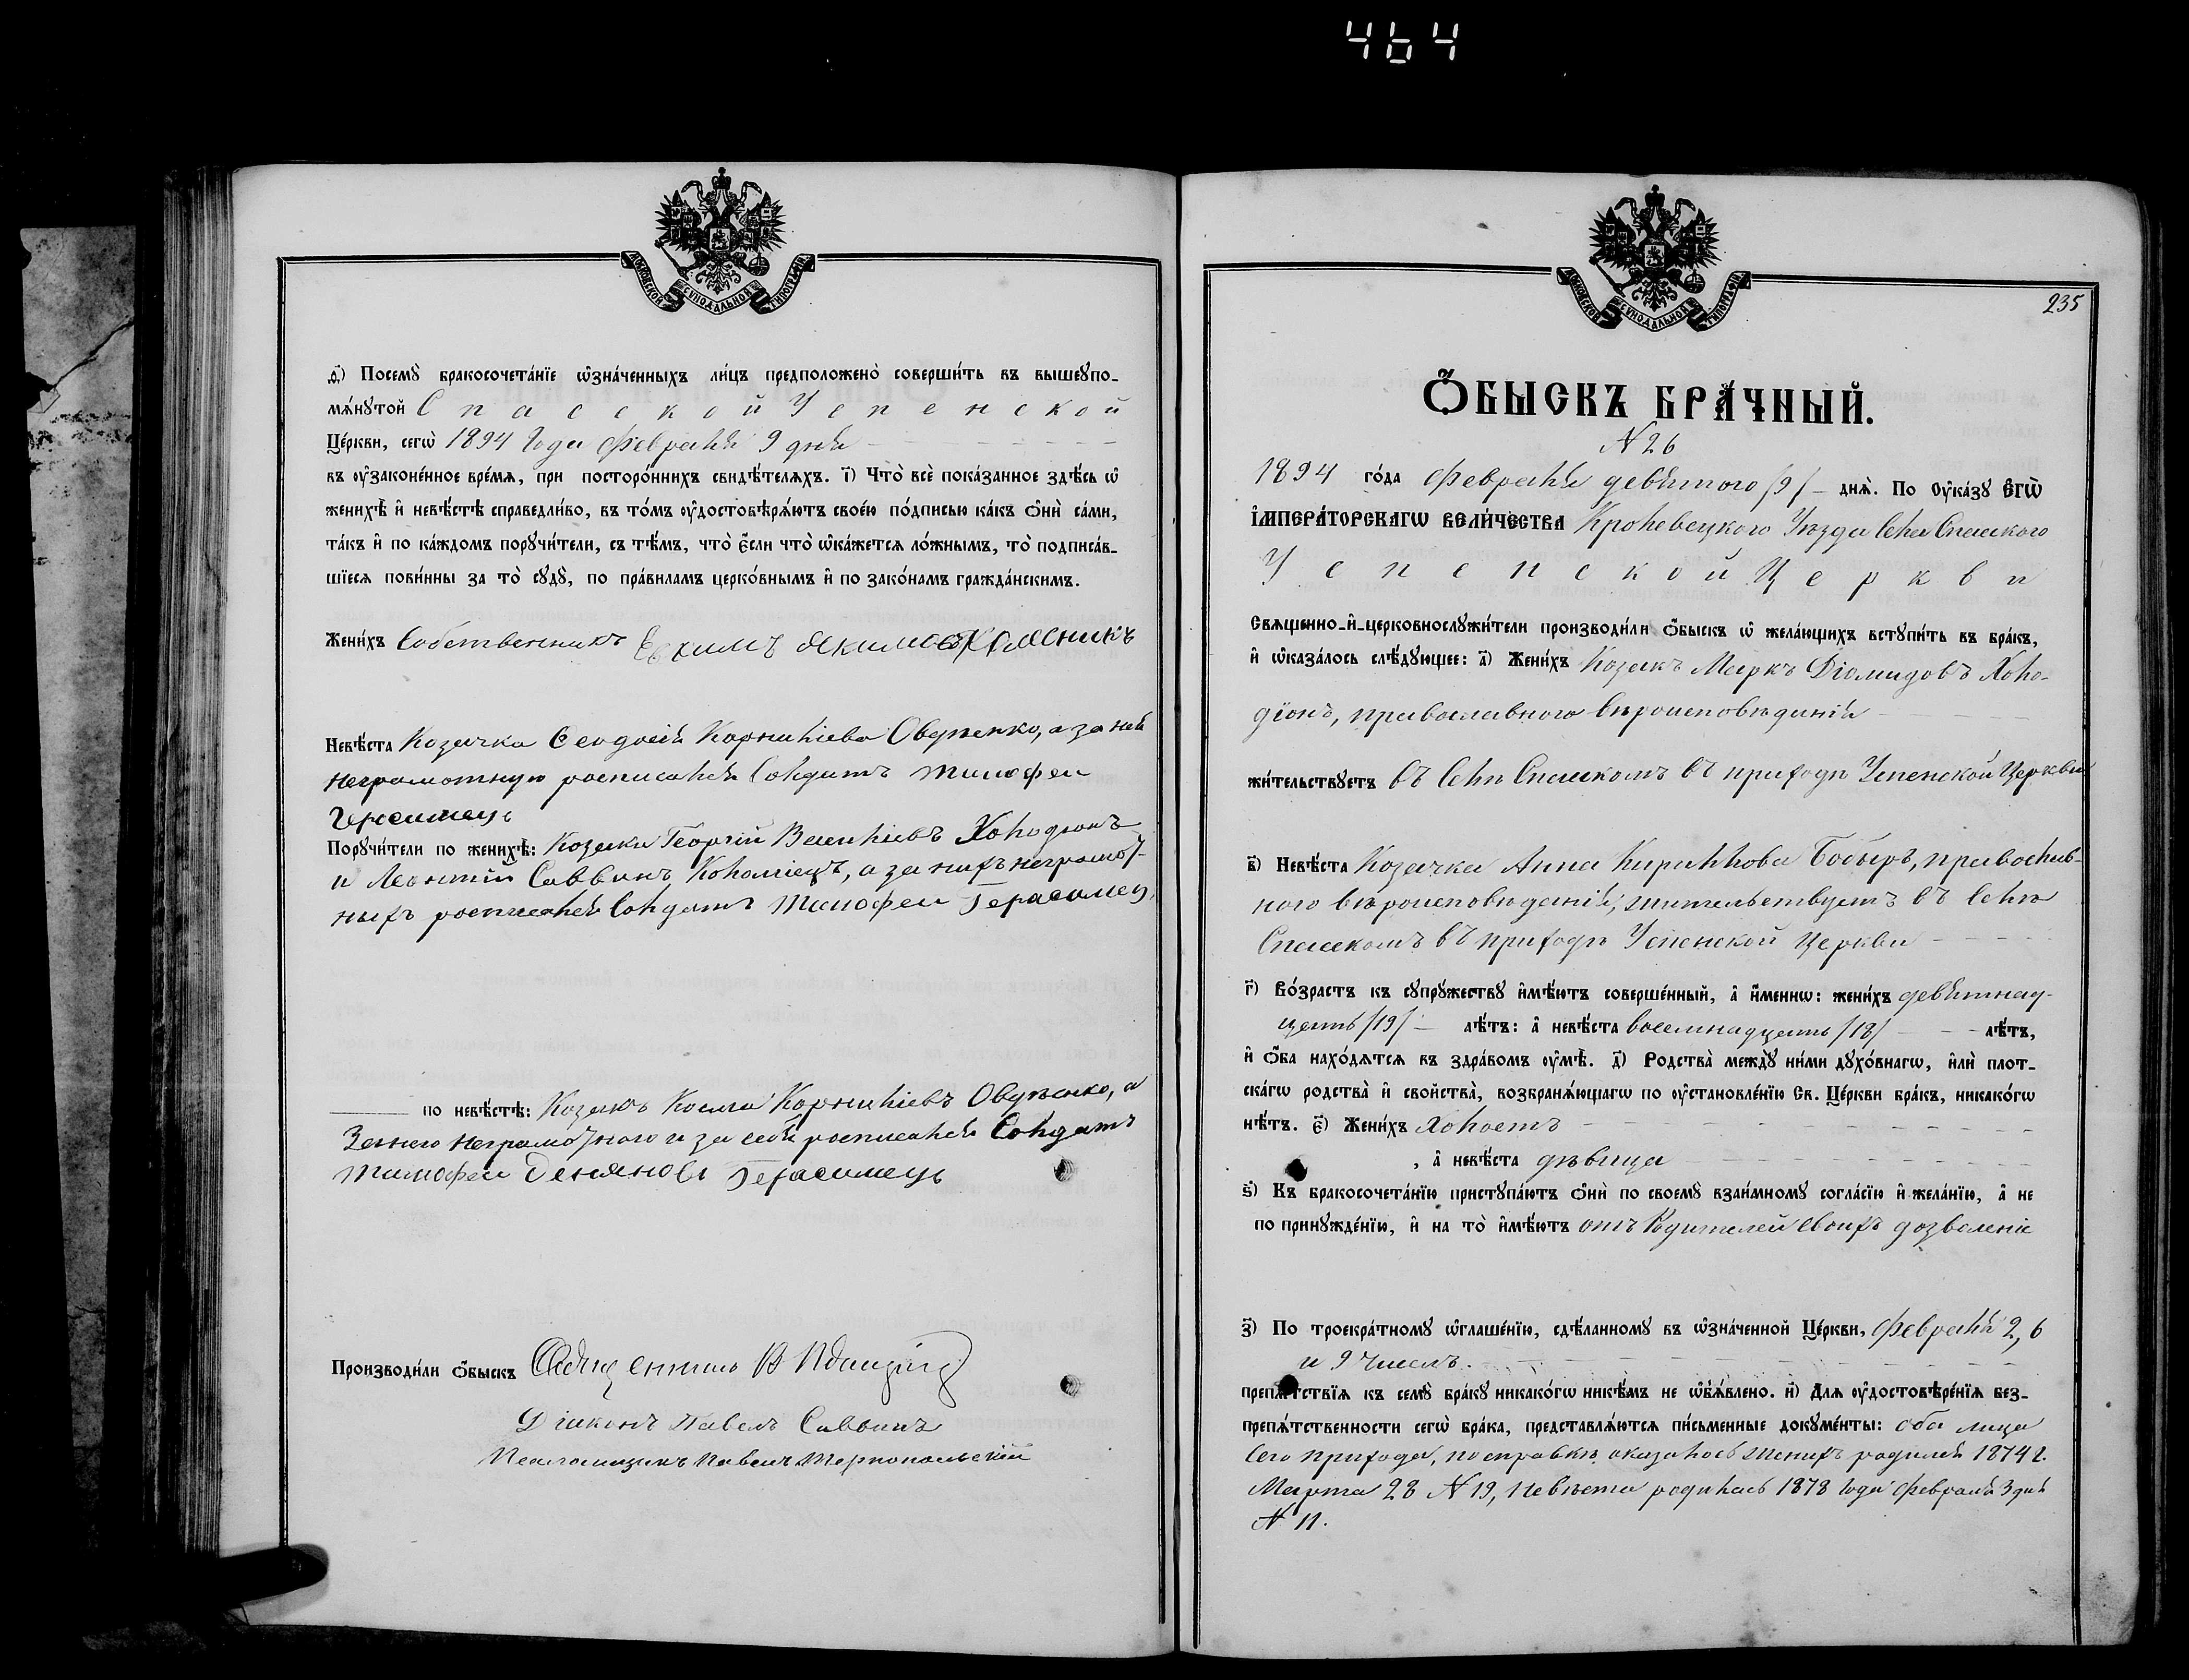 464
МОСКОВСКОЙ СѴНОДАЛЬНОЙ ТИПОГРАФІИ
ѳ҃) Посемꙋ̀ бракосочета́нїе ѡ҆зна́ченныхъ ли́цъ предположено̀ соверши́ть въ вышеꙋпо-
мѧ́нꙋтой Спасской Успенской
Це́ркви, сегѡ̀ 1894 года Февраля 9 дня
въ ᲂу҆законе́нное вре́мѧ, при посторо́ннихъ свидѣ́телѧхъ. і҃) Что̀ всѐ пока́занное здѣ́сь ѡ҆
женихѣ̀ и҆ невѣ́стѣ справедли́во, въ то́мъ ᲂу҆достовѣрѧ́ютъ свое́ю по́дписью ка́къ ѻ҆нѝ са́ми,
та́къ и҆ по ка́ждомъ порꙋчи́тели, съ тѣ́мъ, что̀ є҆́сли что̀ ѡ҆ка́жетсѧ ло́жнымъ, то̀ подписа́в-
шїесѧ пови́нны за то̀ сꙋдꙋ̀, по пра́виламъ церко́внымъ и҆ по зако́намъ гражда́нскимъ.
Жени́хъ Собственникъ Евхимъ Якимов
Невѣ́ста Козачка Ѳеодосія Корниліева Овдіенко, а за ней
неграмотную росписался Солдатъ Тимофеи
Герасимець
Порꙋчи́тели по женихѣ̀: Козаки Георгій Васильевъ Холодіонъ
и Леонтій Саввинъ Коломіецъ, а за нихъ неграмот-
ныхъ росписался Солдатъ Тимофеи Герасимец
по невѣ́стѣ: Козакъ Косма Корниліевъ Овдіенко, а
За него неграмотного и за себя росписался Солдатъ
Тимофеи Демяновъ Герасимець
Производи́ли ѻ҆́быскъ Священникъ
Діаконъ Павелъ Саввинъ
Псаломщикъ Павелъ Тернопольскій
МОСКОВСКОЙ СѴНОДАЛЬНОЙ ТИПОГРАФІИ
235
Ѻ҆́БЫСКЪ БРА́ЧНЫЙ.
N 26
1894 го́да Февраля девятого /9/ – днѧ̀. По Оу҆ка́зꙋ Є҆ГѠ̀
І҆МПЕРА́ТОРСКАГѠ ВЕЛИ́ЧЕСТВА Кролевецкого Уезда Села Спасского
Успенской Церкви
Свѧщенно-и҆-церковнослꙋжи́тели производи́ли ѻ҆́быскъ ѡ҆ жела́ющихъ встꙋпи́ть въ бра́къ,
и҆ ѡ҆каза́лось слѣ́дꙋющее: а҃) Жени́хъ Козакъ Маркъ Діомидовъ Холо-
діонъ, православного вѣроисповѣданія
жи́тельствꙋетъ въ Селѣ Спасскомъ въ приходѣ Успенской Церкви
в҃) Невѣ́ста Козачка Анна Кириллова Бобыръ, православ-
ного вѣроисповѣданія; жительствуетъ въ Селѣ
Спасскомъ въ приходѣ Успенской Церкви
г҃) Во́зрастъ къ сꙋпрꙋ́жествꙋ и҆мѣ́ютъ соверше́нный, а҆ и҆́меннѡ: жени́хъ девятнад-
цать /19/ – лѣ́тъ: а҆ невѣ́ста восемнадцать /18/ – лѣ́тъ,
и҆ ѻ҆́ба нахо́дѧтсѧ въ здра́вомъ ᲂу҆мѣ̀. д҃) Родства̀ междꙋ̀ ни́ми дꙋхо́внагѡ, и҆лѝ плот-
ска́гѡ родства̀ и҆ свойства̀, возбранѧ́ющагѡ по ᲂу҆становле́нїю Св. Це́ркви бра́къ, никако́гѡ
нѣ́тъ. є҃) Жени́хъ Холостъ
, а҆ невѣ́ста дѣвица
ѕ҃) Къ бракосочета́нїю пристꙋпа́ютъ ѻ҆нѝ по своемꙋ̀ взаи́мномꙋ согла́сїю и҆ жела́нїю, а҆ не
по принꙋжде́нїю, и҆ на то̀ и҆мѣ́ютъ отъ Родителей своихъ дозволеніе
з҃) По троекра́тномꙋ ѡ҆глаше́нїю, сдѣ́ланномꙋ въ ѡ҆зна́ченной Це́ркви, Февраля 2, 6
и 9 числъ.
препѧ́тствїѧ къ семꙋ̀ бра́кꙋ никако́гѡ никѣ́мъ не ѡ҆б̾ѧ́влено. и҃) Длѧ ᲂу҆достовѣре́нїѧ без-
препѧ́тственности сегѡ̀ бра́ка, представлѧ́ютсѧ пи́сьменные докꙋме́нты: оба лица
сего прихода, по справкѣ оказалось женихъ родился 1874 г.
Марта 28 N 19, Невѣста родилась 1878 года Февраля 3 дня
N 11.